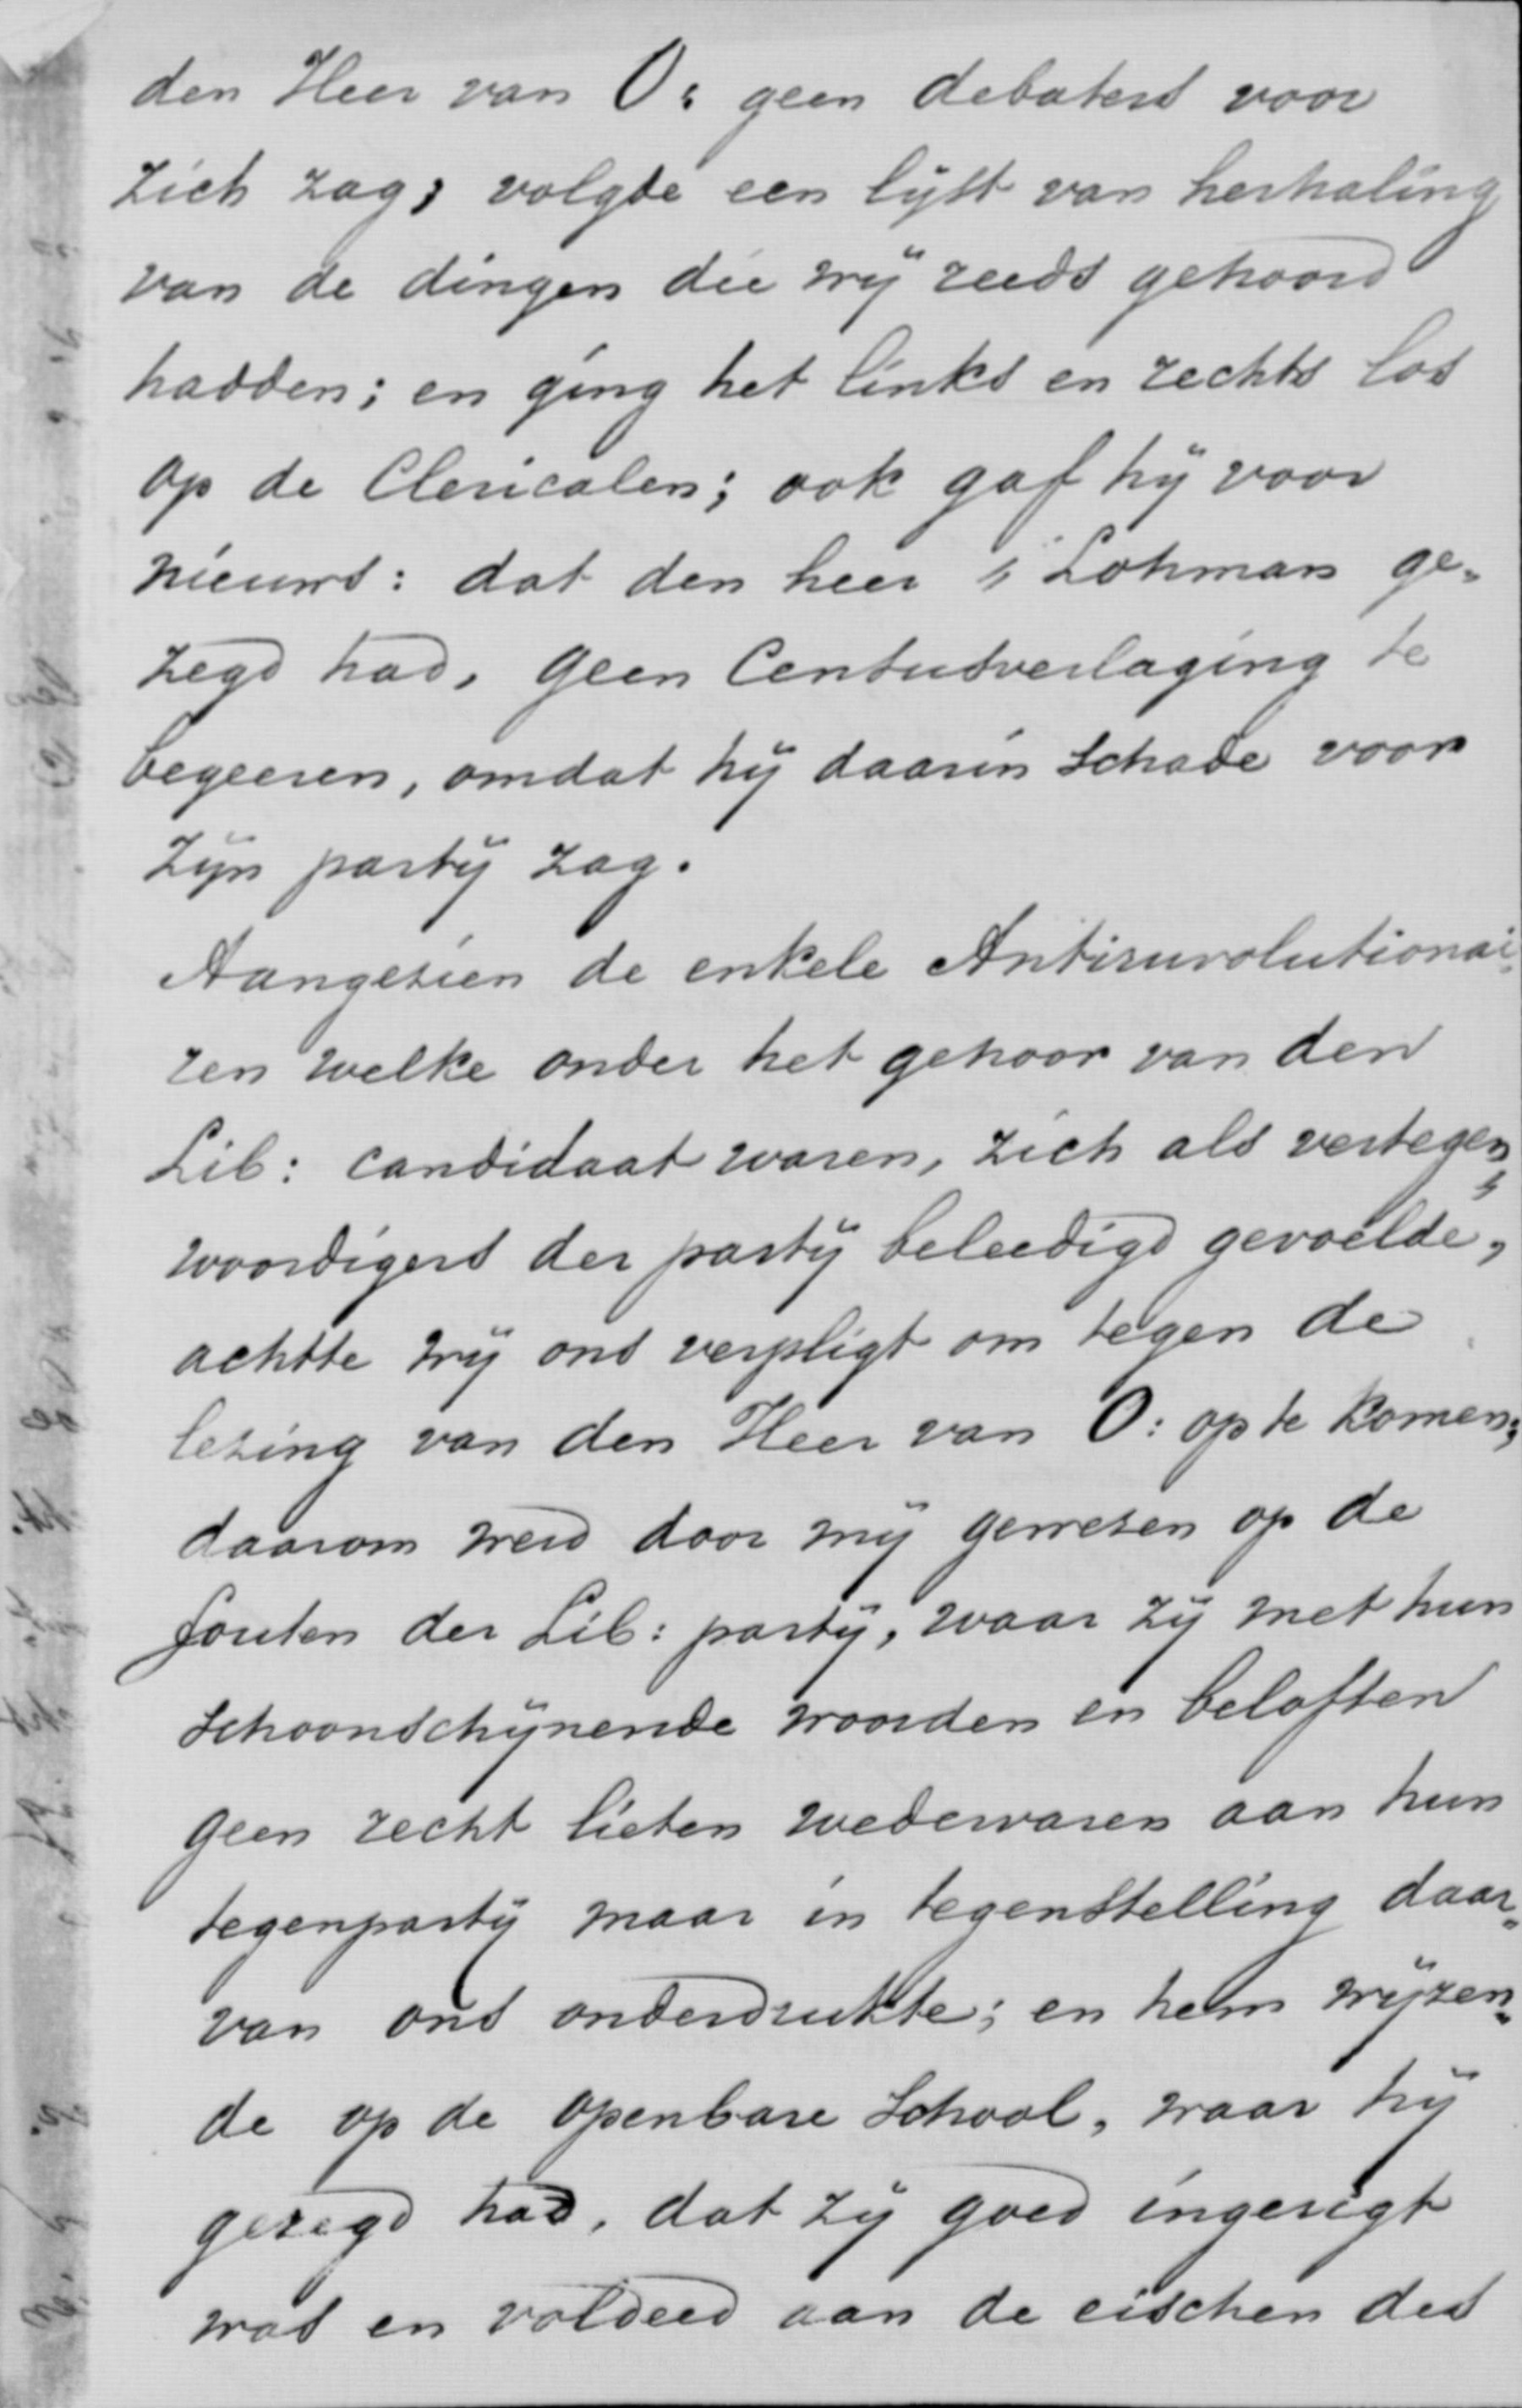 den Heer van O: geen debaters voor
zich zag; volgde een lijst van herhaling
van de dingen die wij reeds gehoord
hadden; en ging het links en rechts los
op de Clericalen; ook gaf hij voor
nieuws: dat den heer Lohman ge„
zegd had, geen Censusverlaging te
begeeren, omdat hij daarin schade voor
zijn partij zag.
Aangezien de enkele Antiruvolutionai„
ren welke onder het gehoor van den
Lib: candidaat waren, zich als vertegen„
woordigers der partij beleedigd gevoelde,
achtte wij ons verpligt om tegen de
lezing van den Heer van O: op te komen;
daarom werd door mij gewezen op de
fouten der Lib: partij, waar zij met hun
schoonschijnende woorden en beloften
geen recht lieten wedervaren aan hun
tegenpartij maar in tegenstelling daar„
van ons onderdrukte; en hem wijzen„
de op de openbare School, waar hij
gezegd had, dat zij goed ingerigt
was en voldeed aan de eischen des